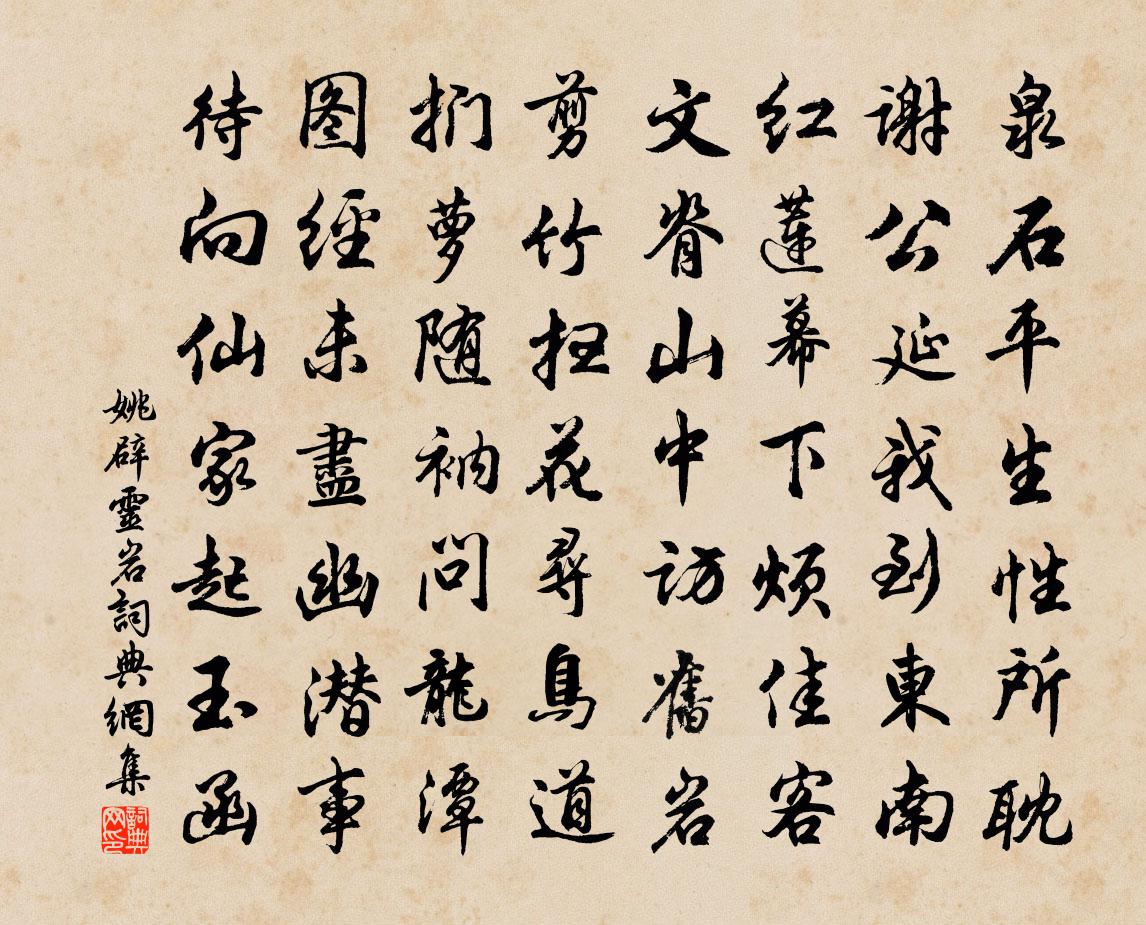 泉石平生性所耽
谢公延我到東南
红蓮幕下烦佳客
文脊山中访舊岩
剪竹扫花尋鳥道
扪萝随衲问龍潭
图經未盡幽潜事
待向仙家起玉函
姚辟靈岩詞典網集
詞典網印